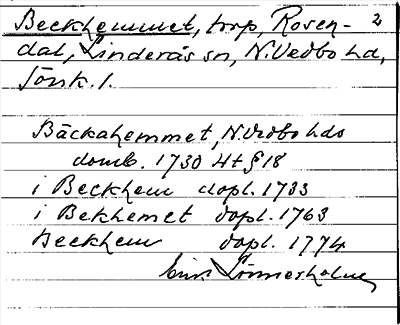 Beckhemmet, torp, Rosen- 2
dal, Linderås sn, N. Vedbo hd,
Jönk. l.
Bäckahemmet, N. Vedbo hds
domb. 1730 4t § 18
i Beckhem dopl. 1733
i Bekhemet dopl. 1763
Beckhem dopl. 1774